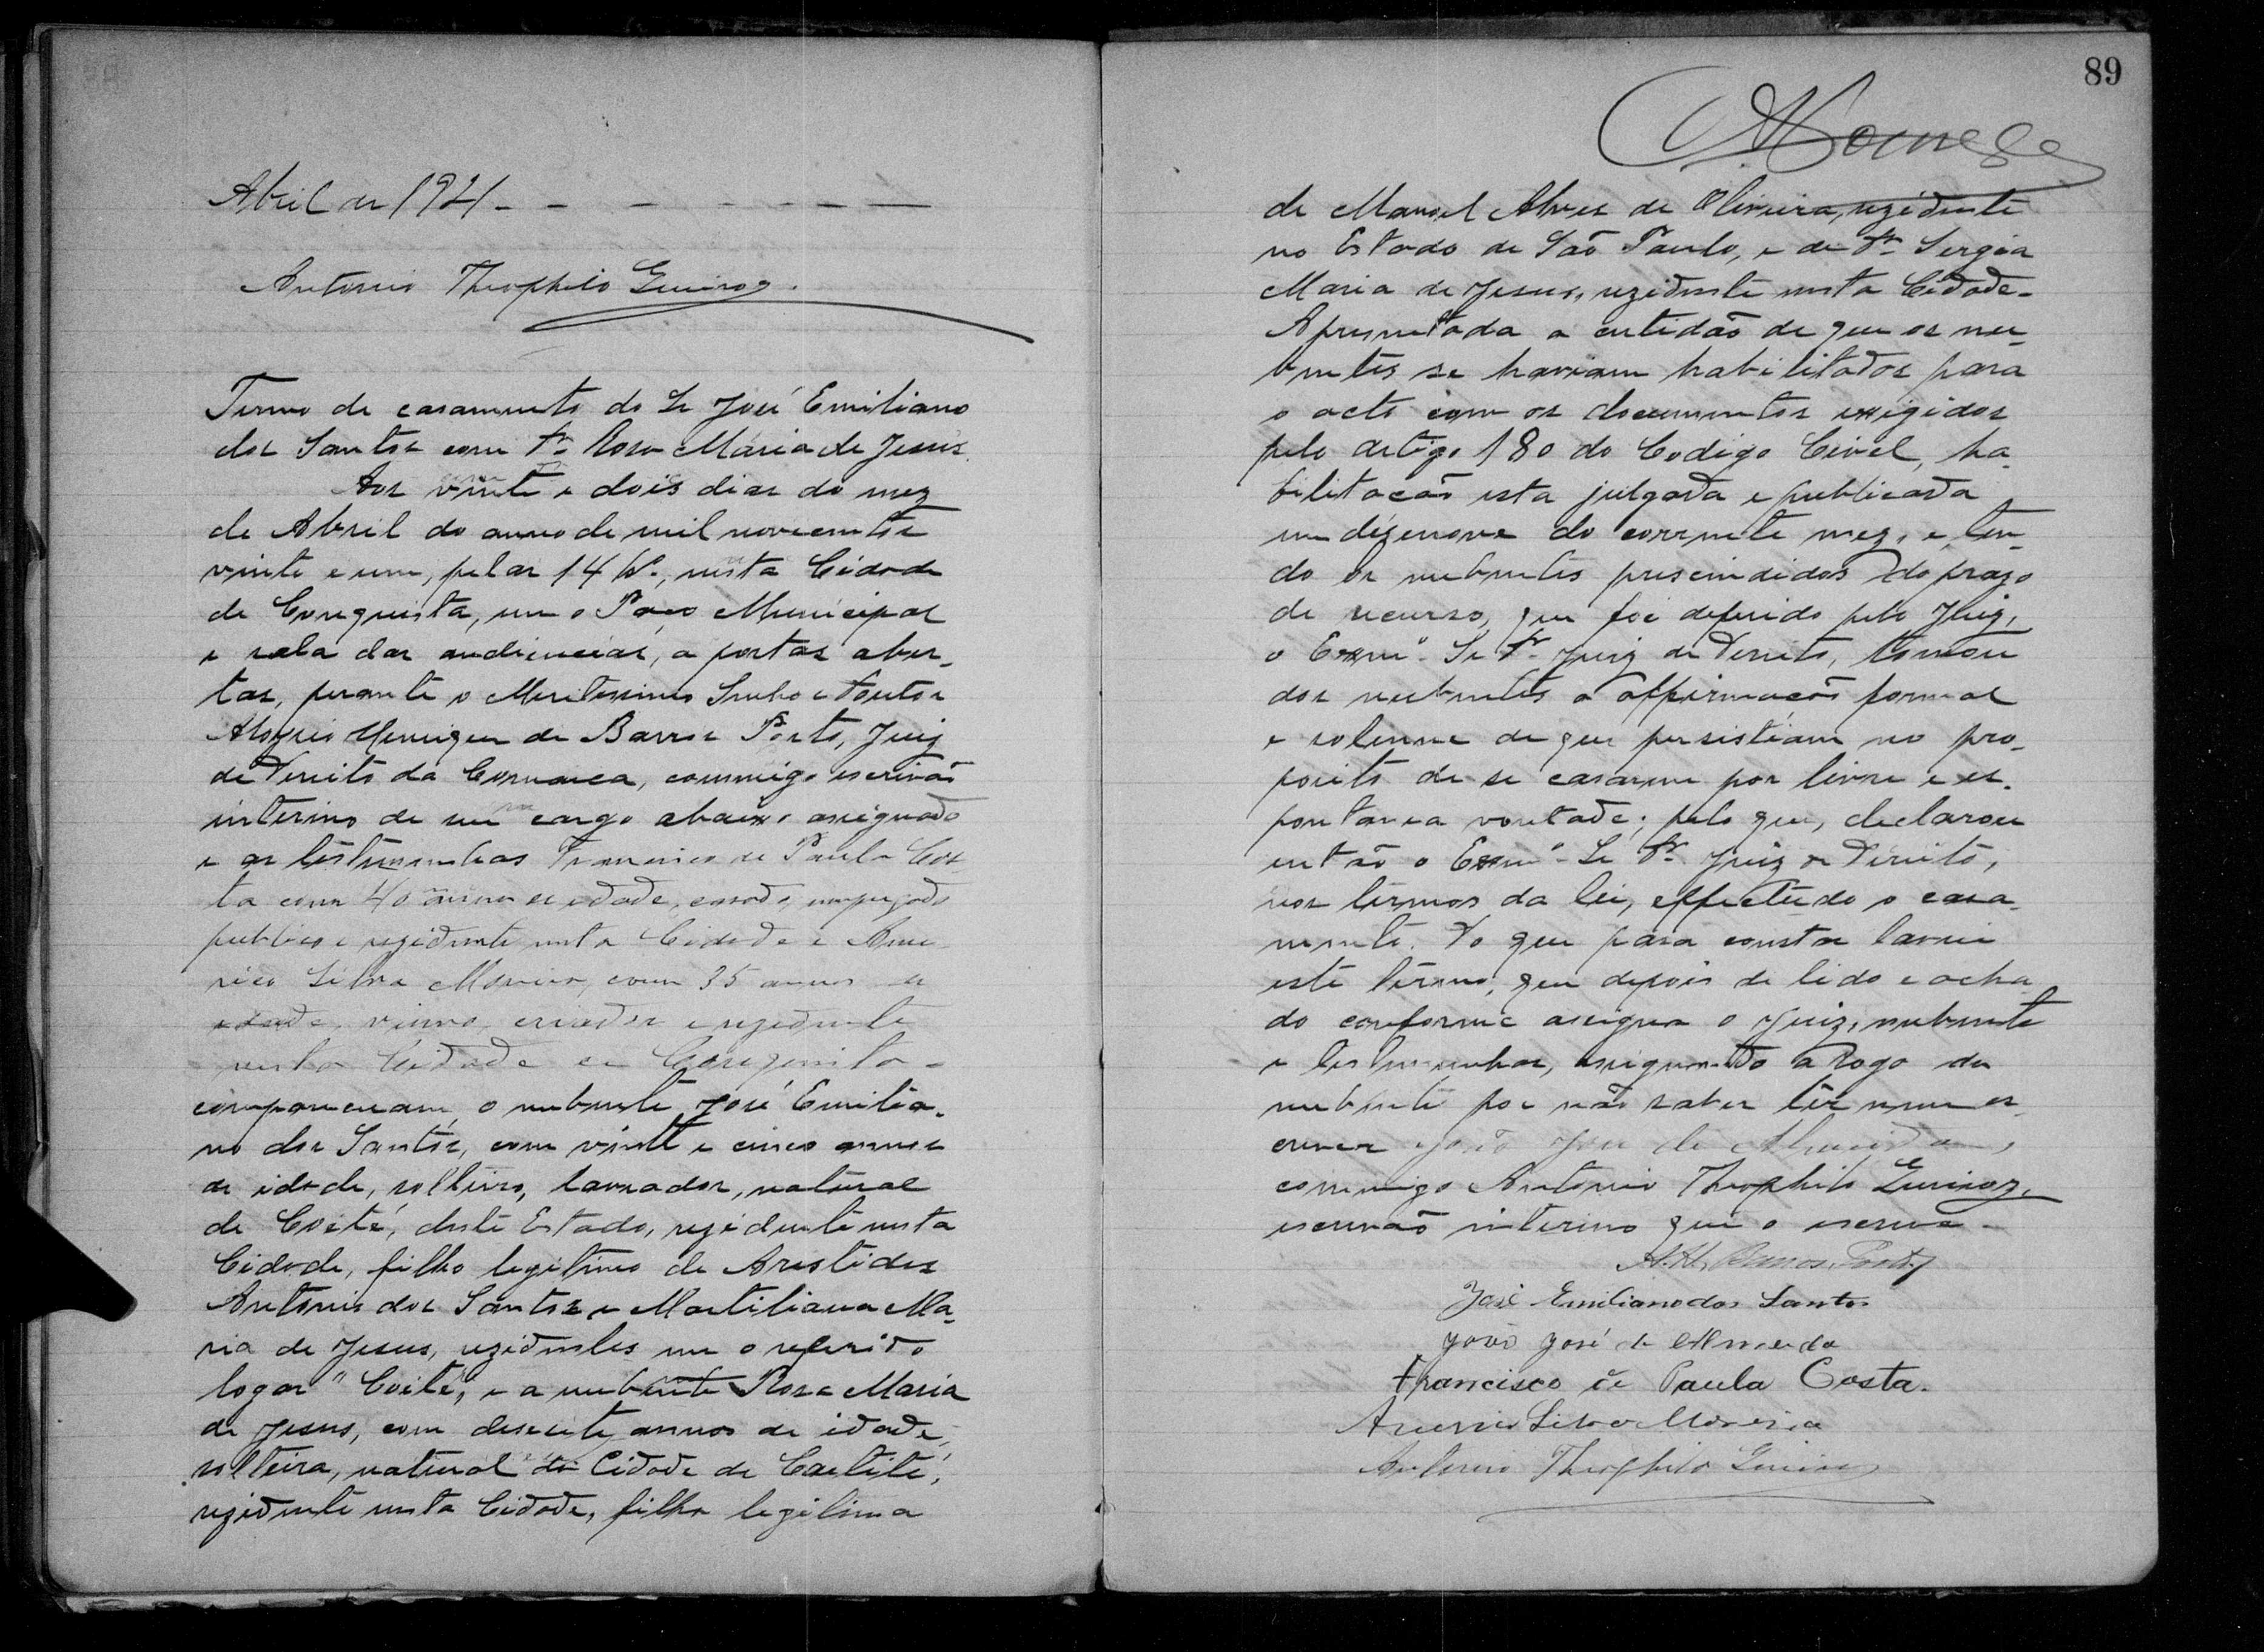 Abril de 1921 - - - - - - -
Antonio Theophilo Queiroz.
Termo de casamento do Sr José Emiliano
dos Santos com Dª Rosa Maria de Jesus.
Aos vinte e dois dias do mez
de Abril do anno de mil novecentos e
vinte e um, pelas 14 hs., nesta Cidade
de Conquista, em o Paço Municipal
e sala das audiencias, a portas aber-
tas, perante o Meritissimo Senhor Doutor
Henrique de Barros Porto, Juiz
de Direito da Comarca, commigo escrivão
interino de seu cargo abaixo assignado
e as testemunhas Francisco de Paula Cos-
ta com 40 annos de edade, casado, empregado
publico e rezidente nesta Cidade e Ame-
rico Silva Moreira, com 35 annos de
edade, viuvo, criador e rezidente
nesta Cidade de Conquista -
compareceram o nubente José Emilia-
no dos Santos, com vinte e cinco annos
de idade, solteiro, lavrador, natural
de Coité, deste Estado, rezidente nesta
Cidade, filho legitimo de Aristides
Antonio dos Santos e Martiliana Ma-
ria de Jesus, rezidentes em o referido
logar "Coité", e a nubente Rosa Maria
de Jesus, com desesete annos de idade,
solteira, natural da Cidade de Caetité,
rezidente nesta Cidade, filha legitima
89
de Manoel Alves de Oliveira, rezidente
no Estado de São Paulo, e de Dª Sergia
Maria de Jesus, rezidente nesta Cidade.
Apresentada a certidão de que os nu-
bentes se haviam habilitados para
o acto com os documentos exigidos
pelo artigo 180 do Codigo Civel, ha-
bilitação esta julgada e publicada
em dezenove do corrente mez, e ten-
do os nubentes prescindidos do prazo
de recurso, que foi deferido pelo Juiz,
o Exmº Sr Dr Juiz de Direito, tomou
dos nubentes a affirmação formal
e solenne de que persistiam no pro-
posito de se casarem por livre e es-
pontanea vontade; pelo que, declarou
então o Exmº Sr Dr Juiz de Direito,
nos termos da lei, effectuado o casa-
mento. Do que para constar lavrei
este termo, que depois de lido e acha-
do conforme assigna o Juiz, nubente
e testemunhas, assignando a rogo da
nubente por não saber lêr nem es-
crever João José de Almeida,
commigo Antonio Theophilo Queiroz,
escrivão interino que o escrevi.
A. H. Barros Porto
José Emiliano dos Santos
João José de Almeida
Francisco de Paula Costa.
Americo Silva Moreira
Antonio Theophilo Queiroz